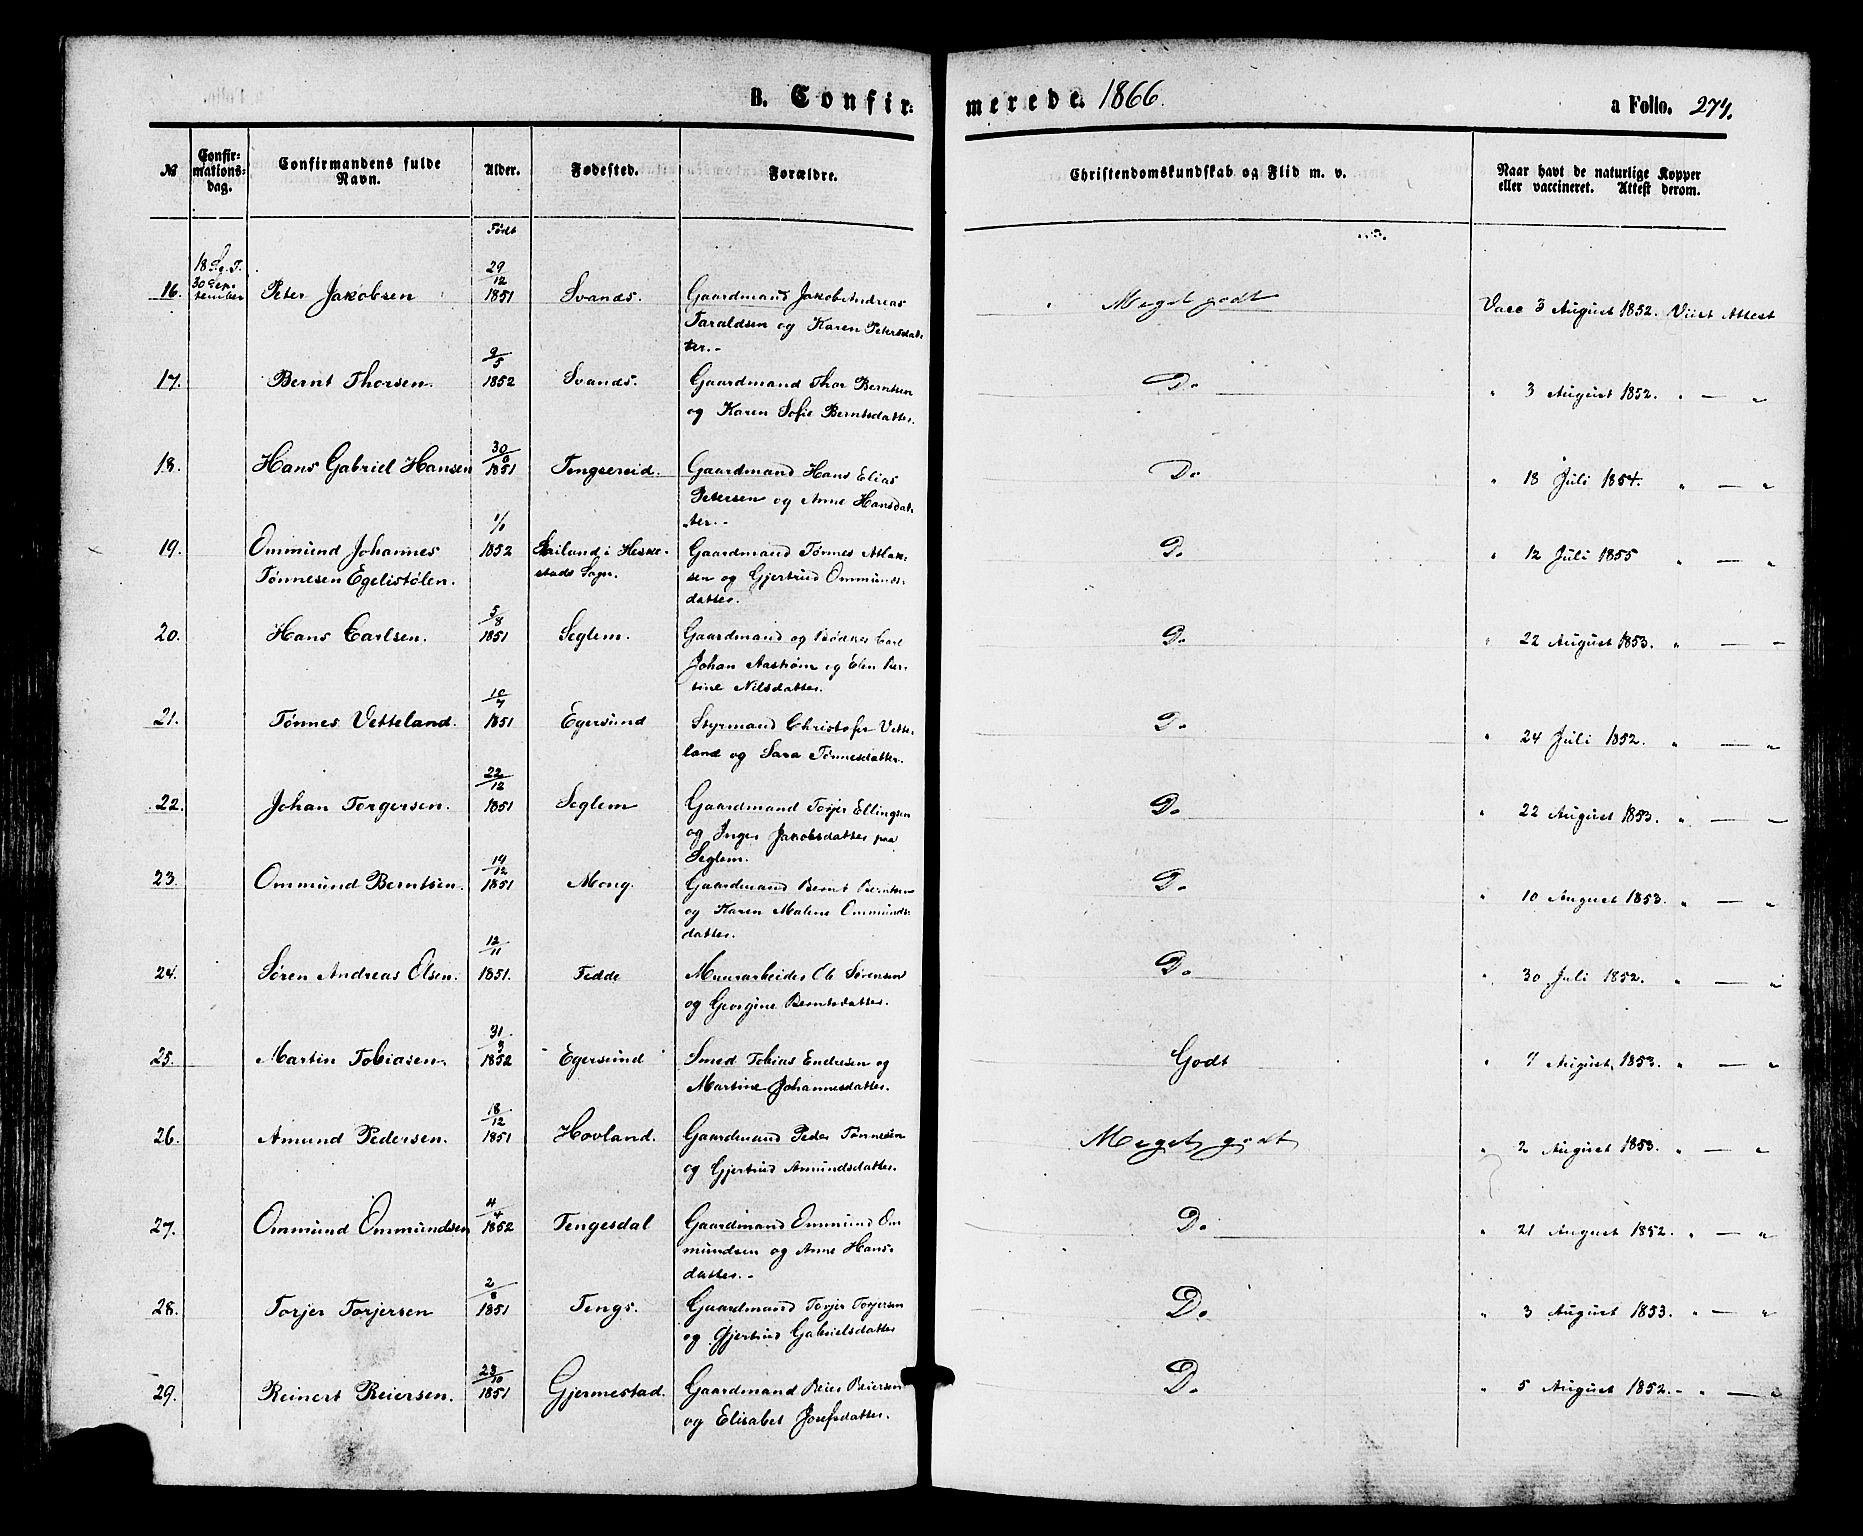 B. Confirmerede. 1866.
a Folio. 274.
№ Confirmationsdag. Confirmandens fulde Navn. Alder. Fødested. Forældre. Christendomskundskab og Flid m. v. Naar havt de naturlige Kopper eller vaccineret. Attest derom.
Født
16. 18 S. e. T. 30 September Peter Jakobsen 29/12 1851 Svands. Gaardmand Jakob Andreas Taraldsen og Karen Petersdatter.- Meget godt Vacc 3 August 1852. Viist Attest
17. Bernt Thorsen. 9/5 1852 Svands. Gaardmand Thor Berntsen og Karen Sofie Berntsdatter. Do " 3 August 1852. " — "
18. Hans Gabriel Hansen 1851 Tengsereid. Gaardmand Hans Elias Petersen og Anne Hansdatter.- Do " 18 Juli 1854. " — "
19. Ommund Johannes Tønnesen Egelistølen. 1852 i Heskestads Sogn. Gaardmand Tønnes Atlaksen og Gjertrud Ommundsdatter. Do " 12 Juli 1855 " — "
20. Hans Carlsen. 5/8 1851 Seglem. Gaardmand og Bødker Carl Johan Aastrøm og Elen Bertine Nilsdatter. Do " 22 August 1853. " — "
21. Tønnes Vetteland. 10/7 1851 Egersund Styrmand Christofer Vetteland og Sara Tønnesdatter. Do " 24 Juli 1852. " — "
22. Johan Torgersen. 22/12 1851 Seglem Gaardmand Torjer Ellingsen og Inger Jakobsdatter paa Seglem. Do " 22 August 1853. " — "
23. Ommund Berntsen. 14/12 1851 Mong. Gaardmand Bernt Berntsen og Karen Malene Ommundsdatter. Do " 10 August 1853. " — "
24. Søren Andreas Olsen. 12/11 1851. Fedde Muurarbeider Ole Sørensen og Georgine Berntsdatter. Do " 30 Juli 1852. " — "
25. Martin Tobiasen. 31/3 1852 Egersund Smed Tobias Endresen og Martine Johannesdatter. Godt " 7 August 1853. " — "
26. Amund Pedersen. 18/12 1851 Hovland. Gaardmand Peder Tønnesen og Gjertrud Amundsdatter. Meget godt " 2 August 1853. " — "
27. Ommund Ommundsen 4/4 1852 Tengesdal Gaardmand Ommund Ommundsen og Anne Hansdatter.- Do " 21 August 1852. " — "
28. Torjer Torjersen 2/8 1851 Tengs. Gaardmand Torjer Torjersen og Gjertrud Gabrielsdatter Do " 3 August 1853. " — "
29. Reinert Reiersen. 23/10 1851 Gjermestad. Gaardmand Reier Reiersen og Elisabet Josefsdatter. Do " 5 August 1852.- " — "